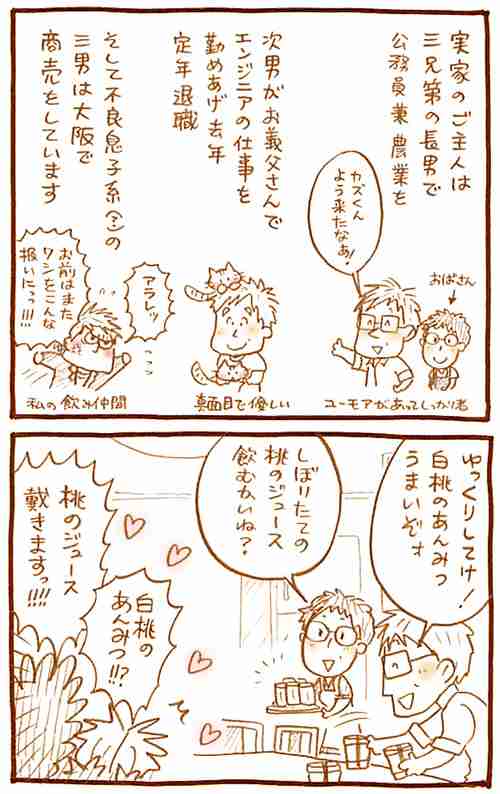 実家のご主人は
三兄弟の長男で
公務員兼農業を
カズくん
よう来たなぁ!
おばさん
ユーモアがあってしっかり者
次男がお義父さんで
エンジニアの仕事を
勤めあげ去年
定年退職
真面目で優しい
そして不良息子系(?)の
三男は大阪で
商売をしています
アラレッ
お前はまた
ワシをこんな
扱いにっっ!!!
私の飲み仲間
ゆっくりしてけ!
白桃のあんみつ
うまいぞォ
しぼりたての
桃のジュース
飲むかいね?
白桃の
あんみつ!!?
桃のジュース
戴きますっ!!!!